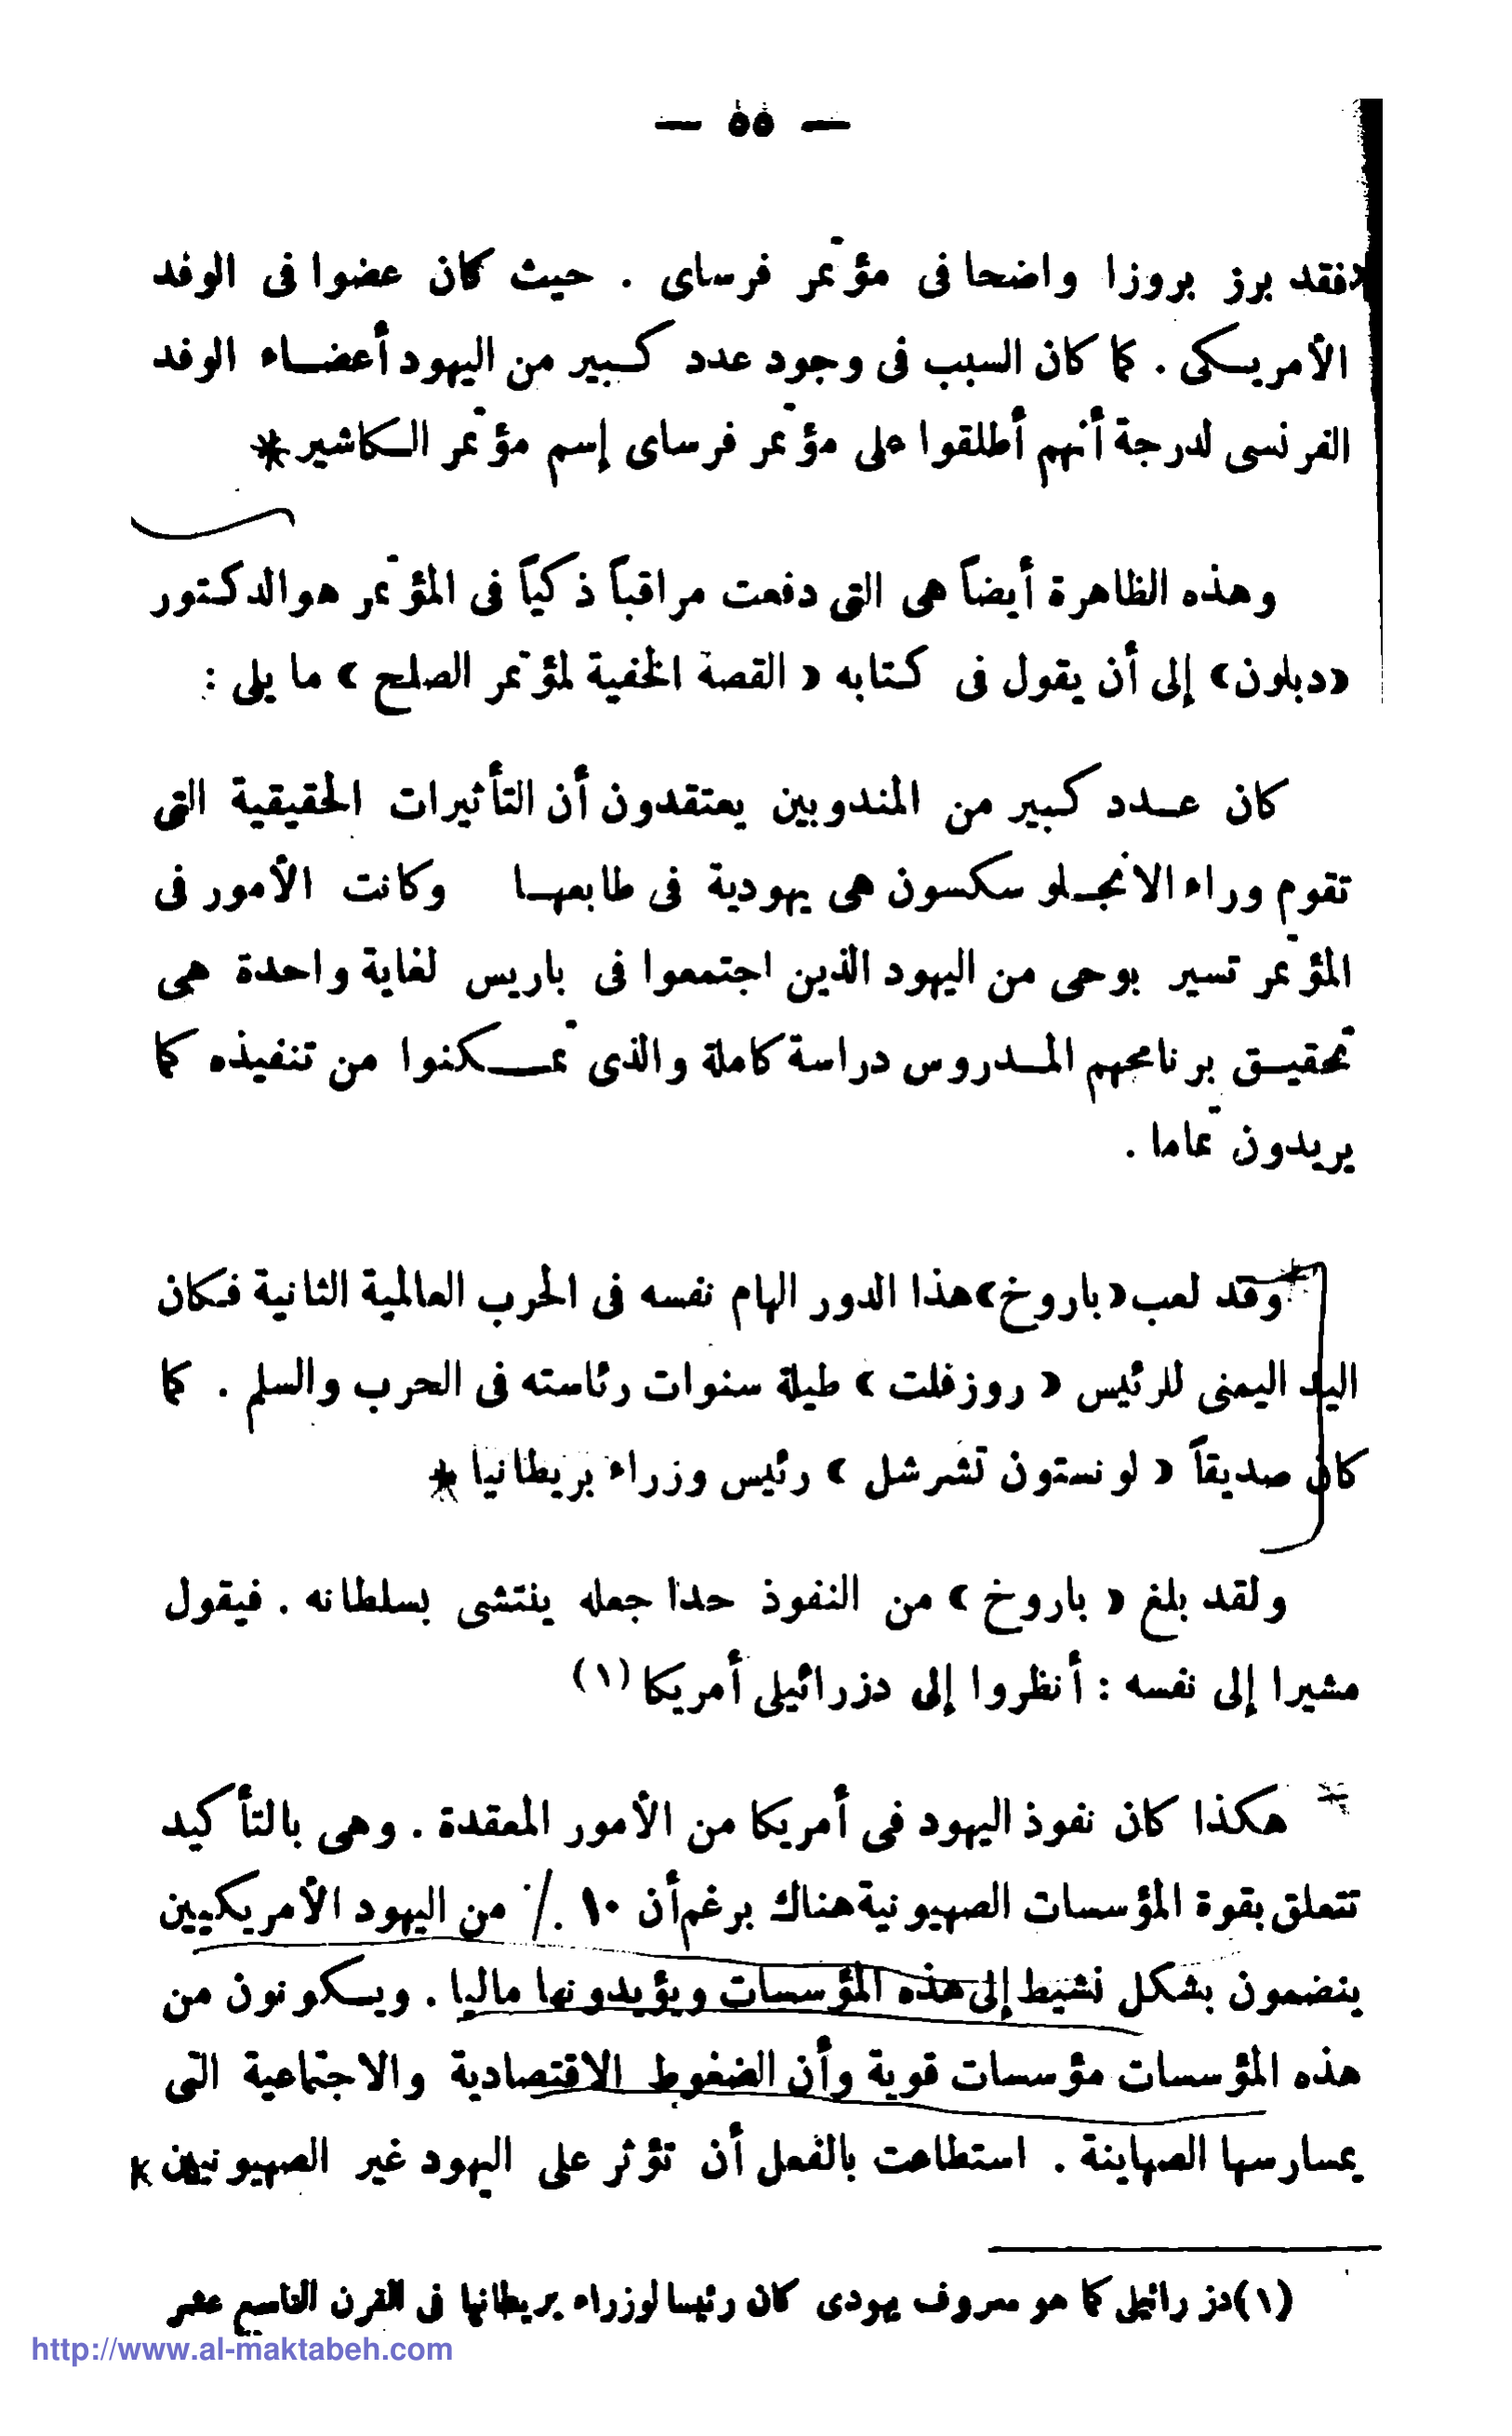 — ٥٥ —
فقد برز بروزا واضحا فى مؤتمر فرساى . حيث كان عضوا فى الوفد
الأمريكى . كما كان السبب فى وجود عدد كبير من اليهود أعضاء الوفد
الفرنسى لدرجة أنهم أطلقوا على مؤتمر فرساى إسم مؤتمر الكاشير*
وهذه الظاهرة أيضاً هى التى دفعت مراقباً ذكياً فى المؤتمر هو الدكتور
«دبلون» إلى أن يقول فى كتابه « القصة الخفية لمؤتمر الصلح » ما يلى :
كان عدد كبير من المندوبين يعتقدون أن التأثيرات الحقيقية التى
تقوم وراء الانجلو سكسون هى يهودية فى طابعها وكانت الأمور فى
المؤتمر تسير بوحى من اليهود الذين اجتمعوا فى باريس لغاية واحدة هى
تحقيق برنامجهم المدروس دراسة كاملة والذى تمكنوا من تنفيذه كما
يريدون تماما .
وقد لعب «باروخ» هذا الدور الهام نفسه فى الحرب العالمية الثانية فكان
اليد اليمنى للرئيس « روزفلت » طيلة سنوات رئاسته فى الحرب والسلم . كما
كان صديقاً « لونستون تشرشل » رئيس وزراء بريطانيا *
ولقد بلغ « باروخ » من النفوذ حدا جعله ينتشى بسلطانه . فيقول
مشيرا إلى نفسه : أنظروا إلى دزرائيلى أمريكا (١)
* هكذا كان نفوذ اليهود فى أمريكا من الأمور المعقدة . وهى بالتأكيد
تتعلق بقوة المؤسسات الصهيونية هناك برغم أن ١٠ ٪ من اليهود الأمريكيين
ينضمون بشكل نشيط إلى هذه المؤسسات ويؤيدونها ماليا . ويكونون من
هذه المؤسسات مؤسسات قوية وأن الضغوط الاقتصادية والاجتماعية التى
يمارسها الصهاينة . استطاعت بالفعل أن تؤثر على اليهود غير الصهيونيين *
(١) دزرائيلى كما هو معروف يهودى كان رئيسا لوزراء بريطانيا فى القرن التاسع عشر
http://www.al-maktabeh.com